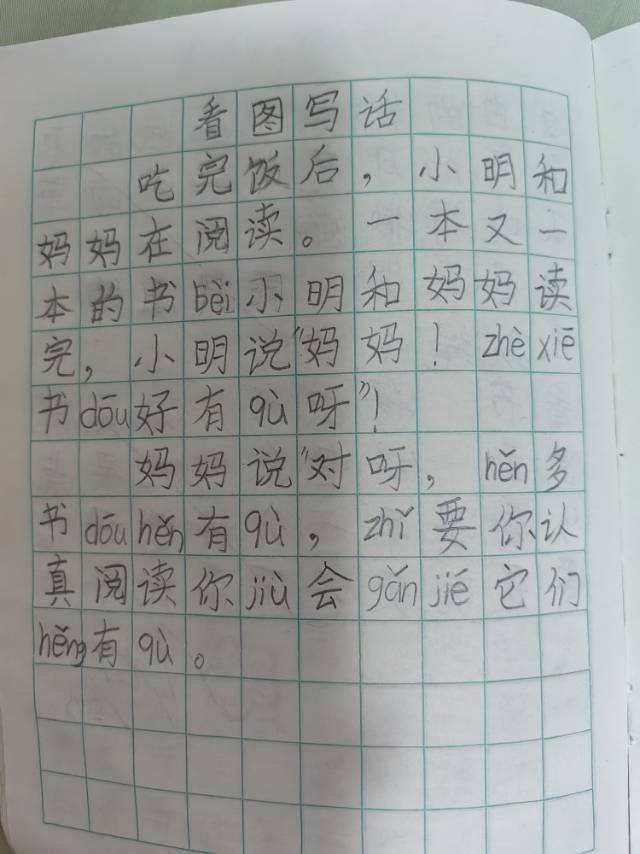 看图写话
吃完饭后，小明和
妈妈在阅读。一本又一
本的书bèi小明和妈妈读
完，小明说“妈妈！zhè xiē
书dōu好有qù呀”！
妈妈说“对呀，hěn多
书dōu hěn有qù，zhǐ要你认
真阅读你jiù会gǎn jié它们
hěng有qù。